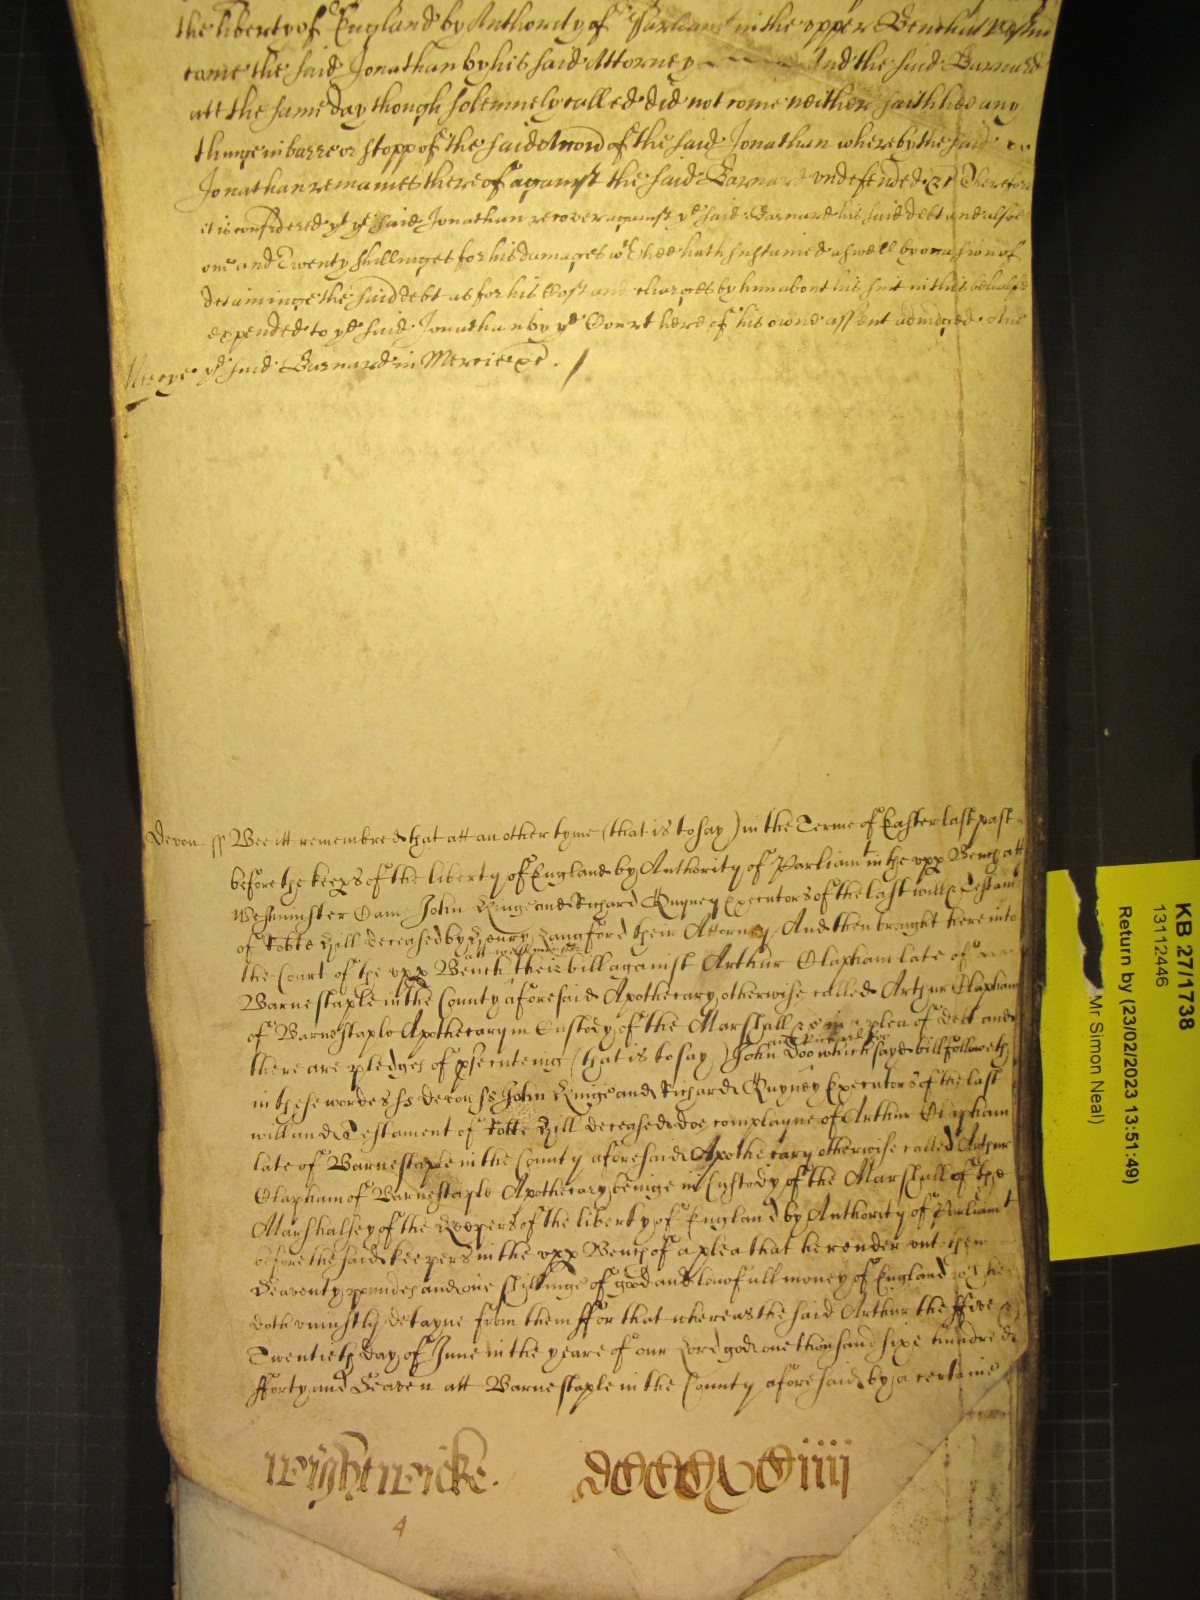 the liberty of England by Authority of Parliamt in the upper Bench att Westm
came the said Jonathan by his said Attorney And the said Barnard
att the same day though solemnely called did not come neither saith hee any
thinge in barre or stopp of the said Accon of the said Jonathan whereby the said
Jonathan remaines thereof against the said Barnard undefended &c Therefore
it is considered yt ye said Jonathan recover against ye said Barnard his said debt and alsoe
one and Twenty shillinges for his damages wch hee hath sustained aswell by occasion of
detaininge the said debt as for his Cost and charges by him about his suit in this behalfe
expended to ye said Jonathan by ye Court here of his owne assent adiudged And
Mercye ye said Barnard in Mercie &c
Devon ss Bee itt remembred that att an other tyme (that is to say) in the Terme of Easter last past
before the keeprs of the liberty of England by Authority of Parliamt in the upp Bench att
Westminster Cam John Kinge and Richard Quyney Executors of the last will & Testamt
of Hill deceased by Henry Langford their Attorney And then brought here into
the Court of the upp Bench att Westmr their bill against Arthur Clapham late of
Barnestaple in the County aforesaid Apothecary otherwise called Arthur Clapham
of Barnestaple Apothecary in Custody of the Marshall &c in a plea of debt and
there are pledges of prsecuteing (that is to say) John Doo and Richard Roo which sayd bill followeth
in these wordes ss Devon ss John Kinge and Richard Quyney Executors of the last
will and Testament of Hill deceased doe complayne of Arthur Clapham
late of Barnestaple in the County aforesaid Apothecary otherwise called Arthur
Clapham of Barnestaple Apothecary beinge in Custody of the Marshall of the
Marshalsey of the Keepers of the liberty of England by Authority of Parliamt
before the said keepers in the upp Bench of a plea that he render unt them
Seaventy poundes and one shillinge of good and lawfull money of England wch he
doth uniustly detayne from them ffor that whereas the said Arthur the ffive &
Twentieth day of June in the yeare of our Lord god one thousand sixe hundred
fforty and Seaven att Barnestaple in the County aforesaid by a certaine
Wightwicke. dCCCCXCiiij
4
KB 27/1738
13112446
Return by (23/02/2023 13:51:49)
Mr Simon Neal)